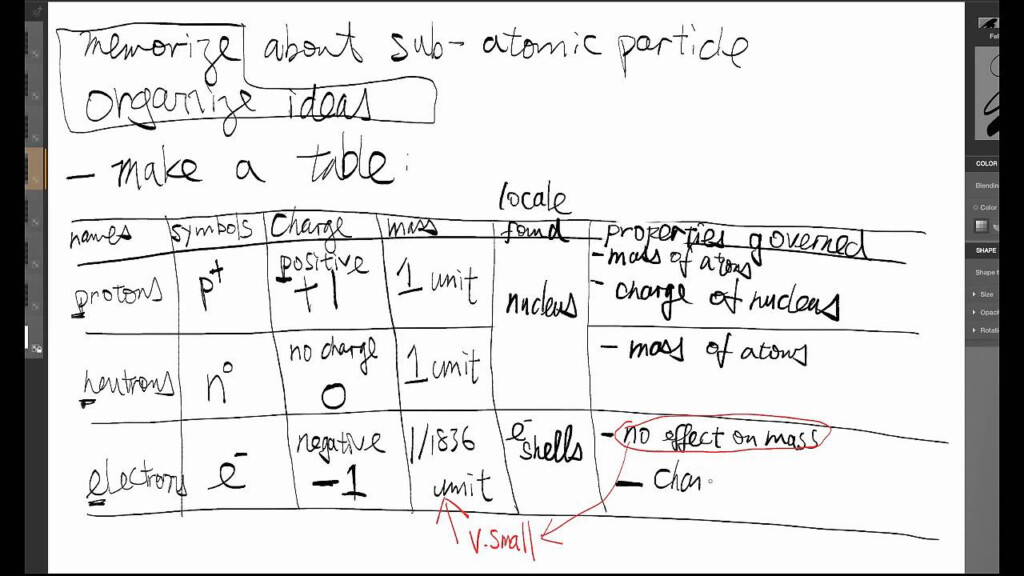 memorize about sub-atomic particle
organize ideas
- make a table:
names symbols Charge mass locale found properties governed
protons p+ positive +1 1 unit nucleus - mass of atoms
- charge of nucleus
neutrons n° no charge 0 1 unit - mass of atoms
electrons e- negative -1 1/1836 unit e- shells - no effect on mass
- char
v.small
COLOR
Blending
Color
SHAPE
Shape
Size